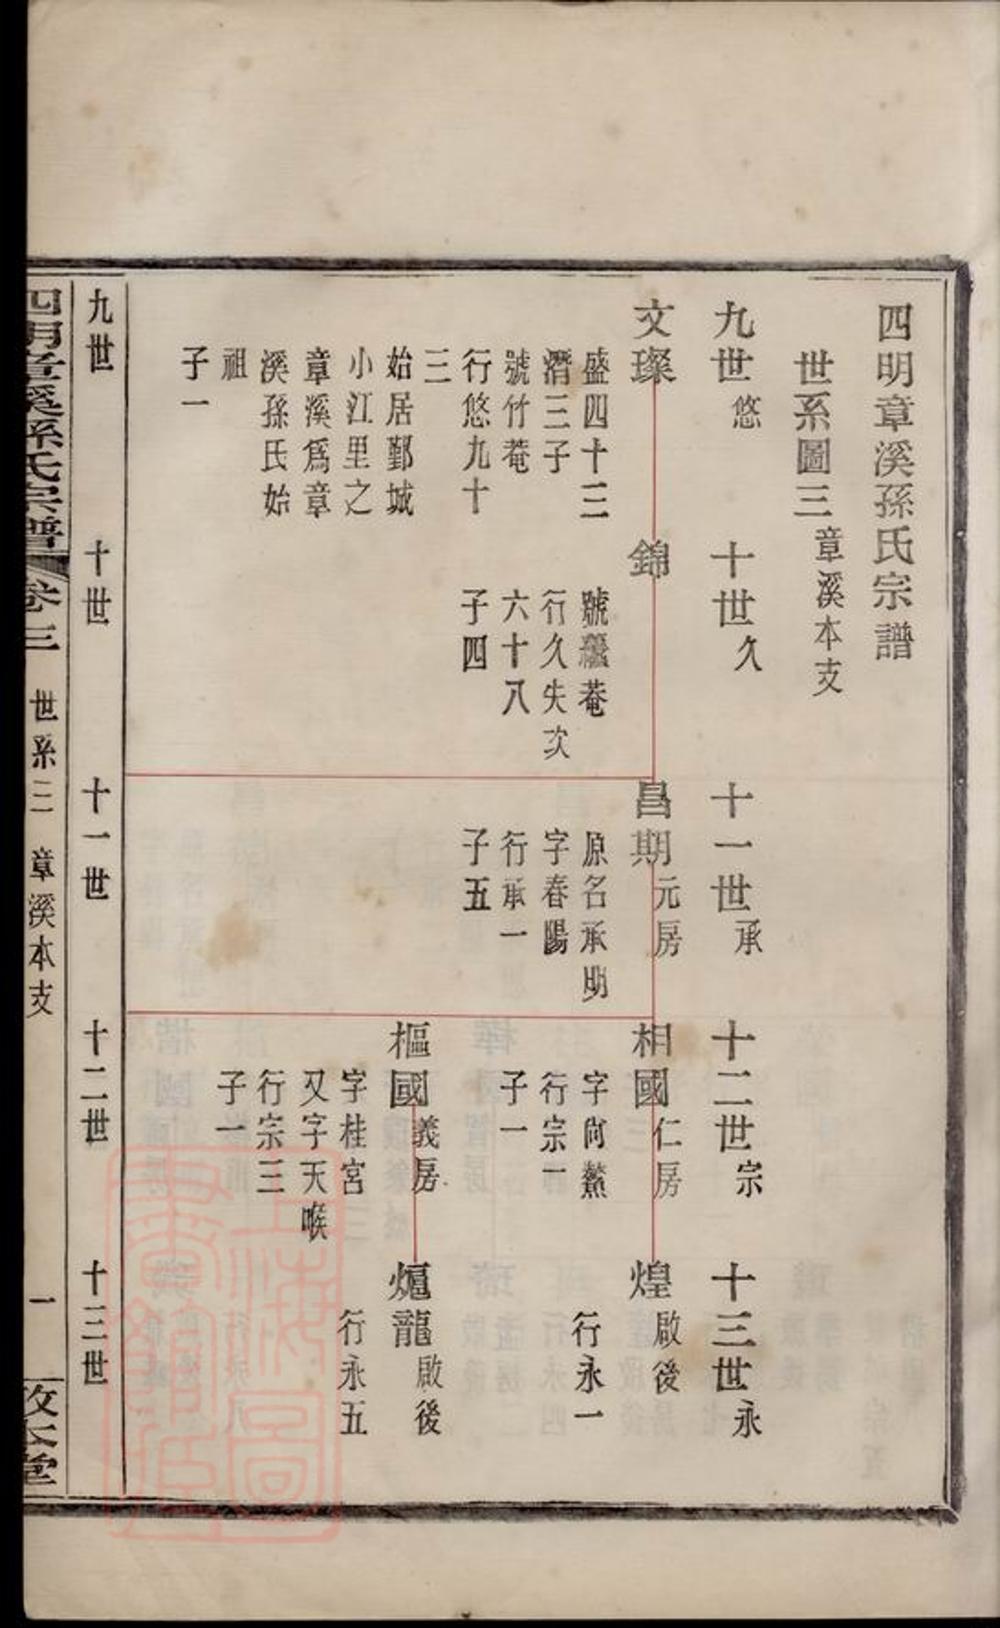 四明章溪孫氏宗譜
世系圖三 章溪本支
九世 悠
十世 久
十一世 承
十二世 宗
十三世 永
文璨
盛四十三
潛三子
號竹菴
行悠九十
三
始居鄞城
小江里之
章溪爲章
溪孫氏始
祖
子一
錦
號 菴
行久失次
六十八
子四
昌期 元房
原名承明
字春陽
行承一
子五
相國 仁房
字尙鰲
行宗一
子一
樞國 義房
字桂宮
又字天喉
行宗三
子一
煌 啟後
行永一
熰龍 啟後
行永五
九世
十世
十一世
十二世
十三世
四明章溪孫氏宗譜 卷三 世系三 章溪本支 一